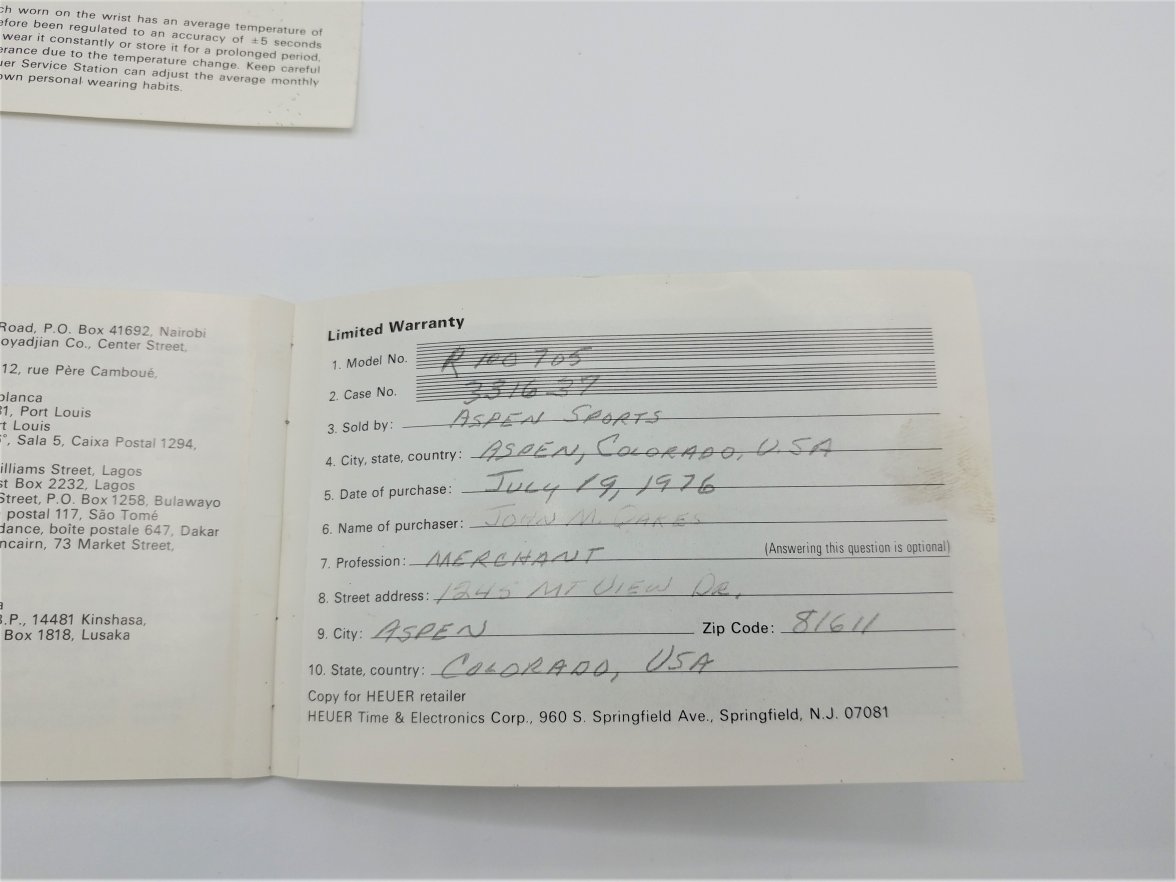 ch worn on the wrist has an average temperature of
efore been regulated to an accuracy of ±5 seconds
wear it constantly or store it for a prolonged period,
erance due to the temperature change. Keep careful
uer Service Station can adjust the average monthly
own personal wearing habits.
Road, P.O. Box 41692, Nairobi
oyadjian Co., Center Street,
12, rue Père Camboué,
blanca
31, Port Louis
rt Louis
6°, Sala 5, Caixa Postal 1294,
illiams Street, Lagos
st Box 2232, Lagos
Street, P.O. Box 1258, Bulawayo
postal 117, São Tomé
dance, boîte postale 647, Dakar
ncairn, 73 Market Street,
a
B.P., 14481 Kinshasa,
Box 1818, Lusaka
Limited Warranty
1. Model No. R 100 705
2. Case No. 331637
3. Sold by: ASPEN SPORTS
4. City, state, country: ASPEN, COLORADO, U.S.A
5. Date of purchase: JULY 19, 1976
6. Name of purchaser: JOHN M. OAKES
7. Profession: MERCHANT (Answering this question is optional)
8. Street address: 1245 MT VIEW DR.
9. City: ASPEN Zip Code: 81611
10. State, country: COLORADO, USA
Copy for HEUER retailer
HEUER Time & Electronics Corp., 960 S. Springfield Ave., Springfield, N.J. 07081